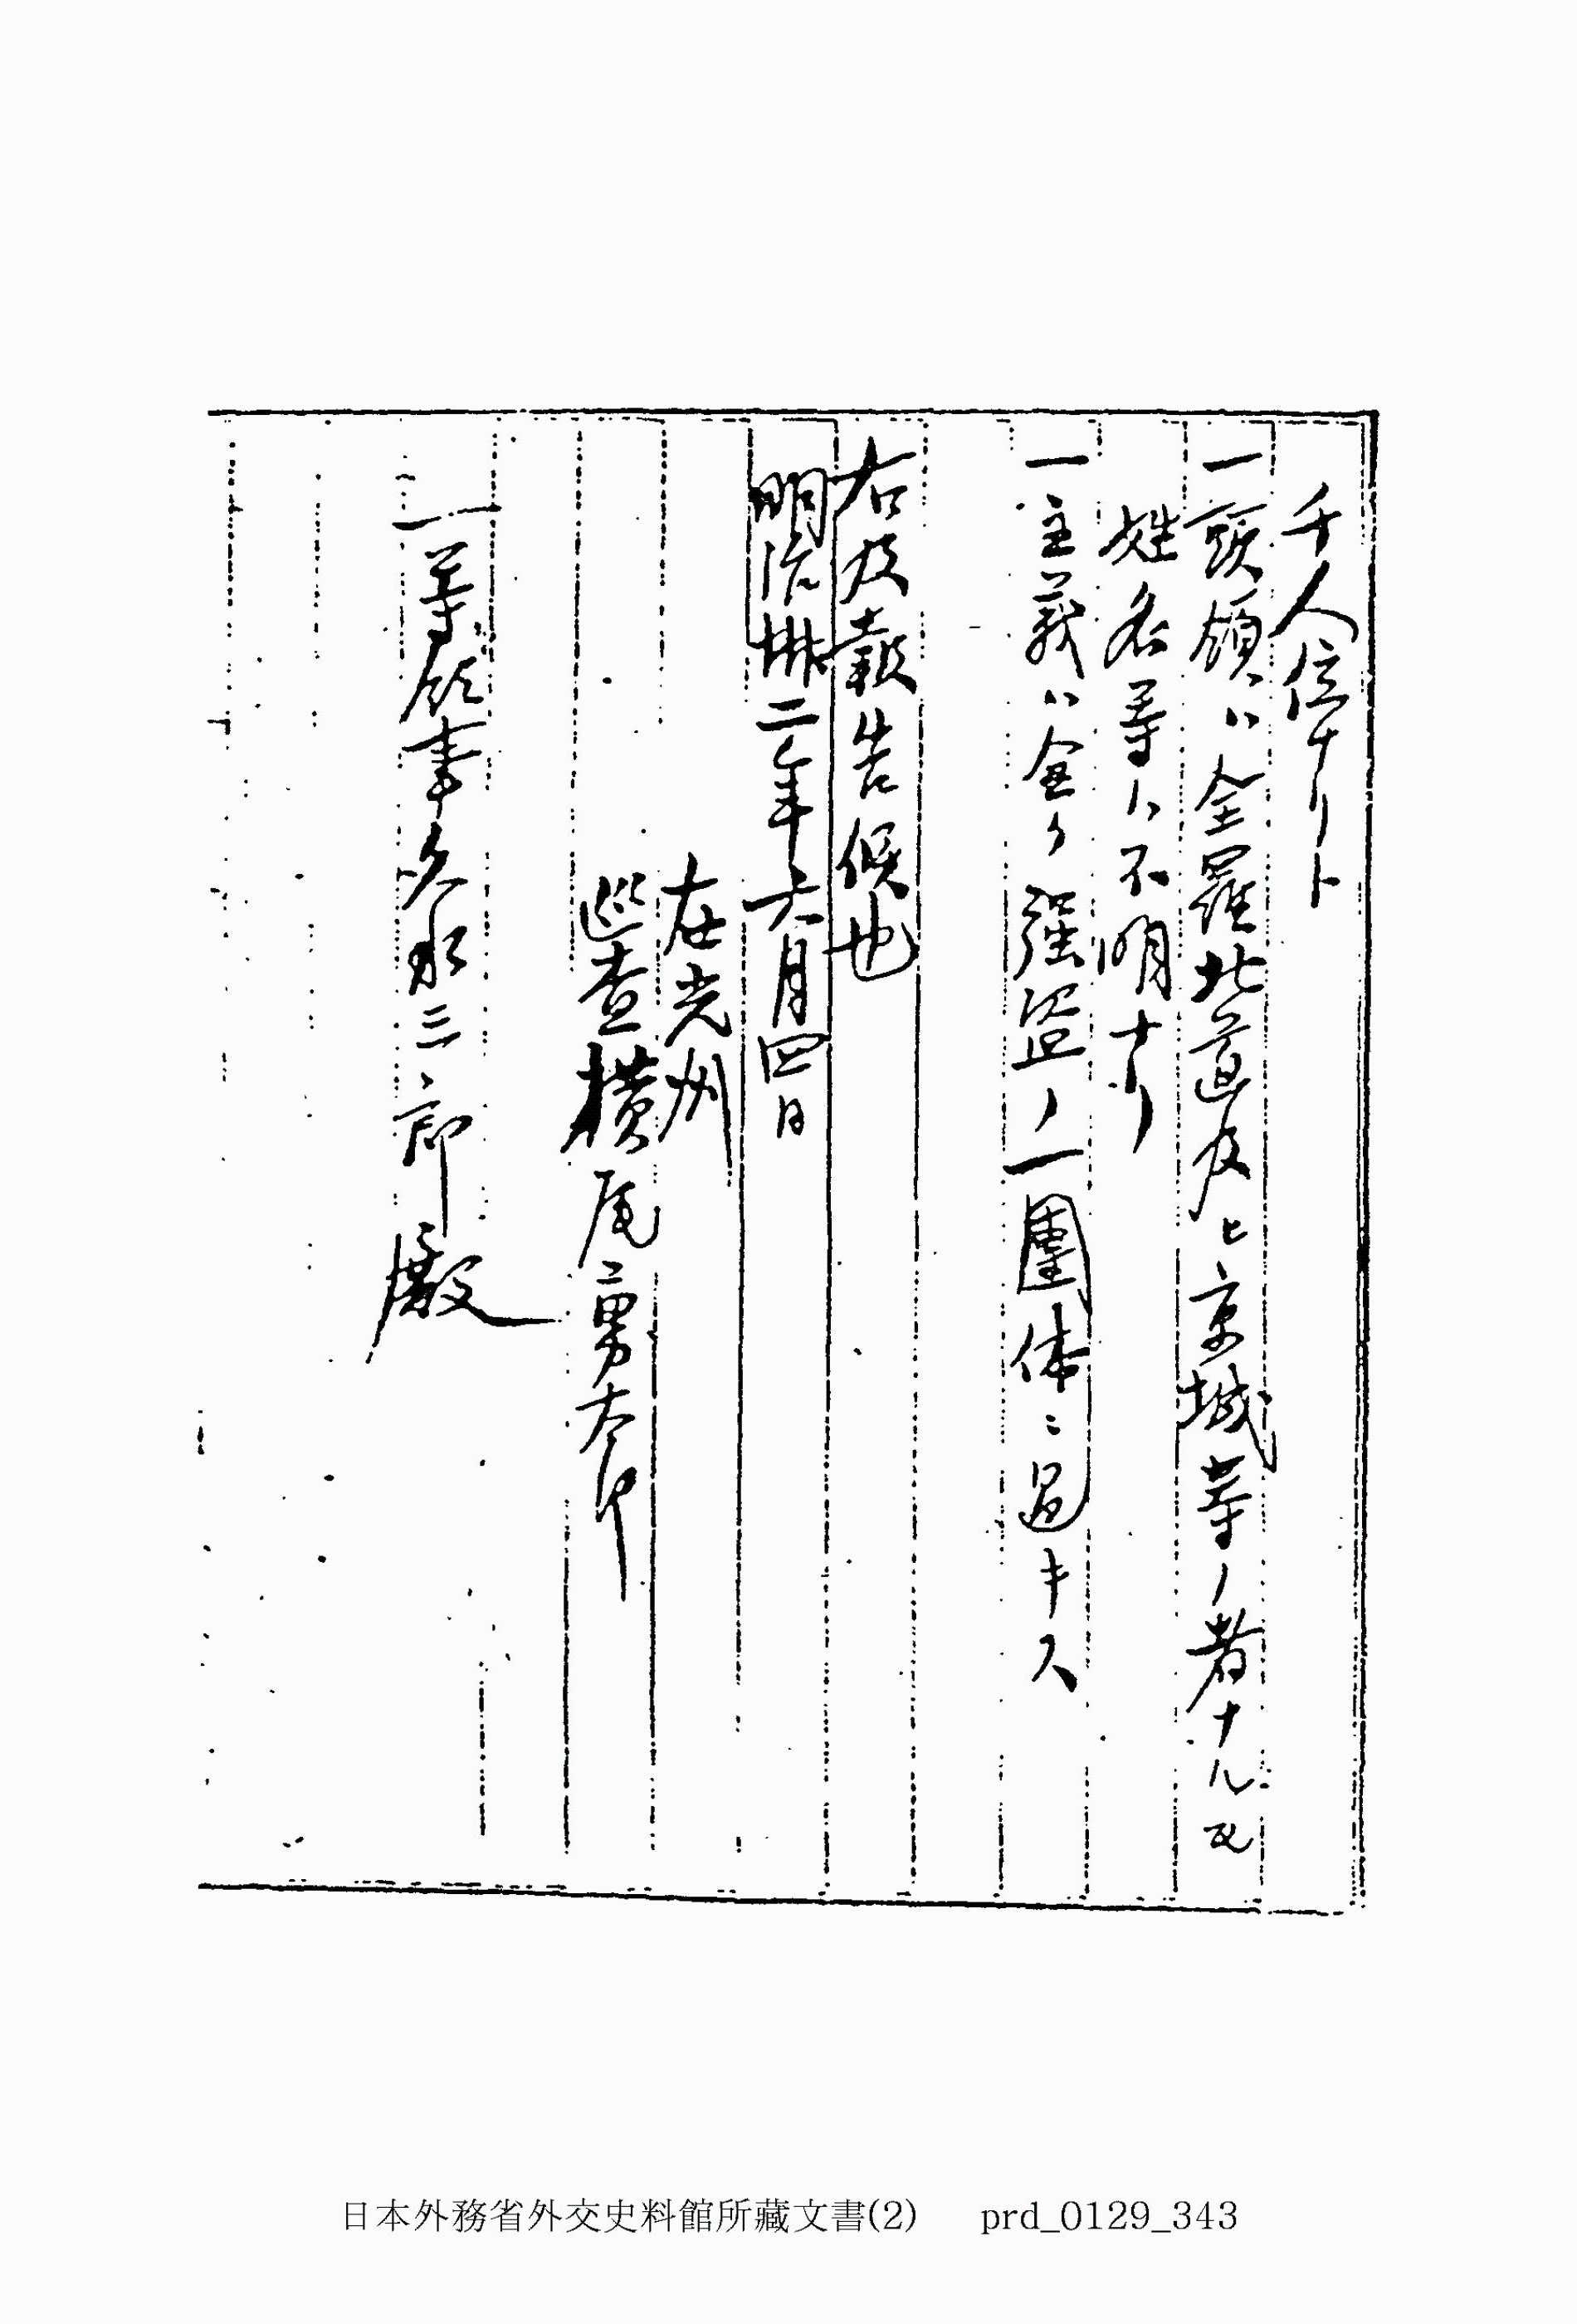 千人位ナリト
一頭領ハ全羅北道及ヒ京城等ノ者ナル𪜈
姓名等ハ不明ナリ
一主義ハ全ク强盗ノ一團体ニ過キス
右及報告候也
明治卅二年六月四日
在光州
巡査横尾勇太郎
一等領事久水三郎殿
日本外務省外交史料館所藏文書(2) prd_0129_343